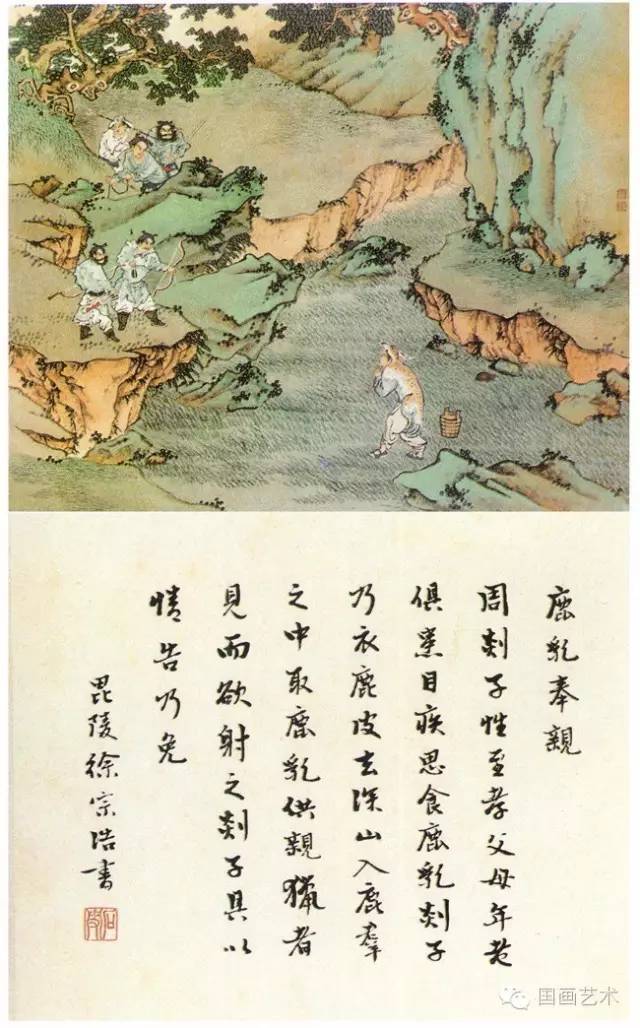 鹿乳奉親
周剡子性至孝父母年老
俱患目疾思食鹿乳剡子
乃衣鹿皮去深山入鹿羣
之中取鹿乳供親獵者
見而欲射之剡子具以
情告乃免
毘陵徐宗浩書
国画艺术